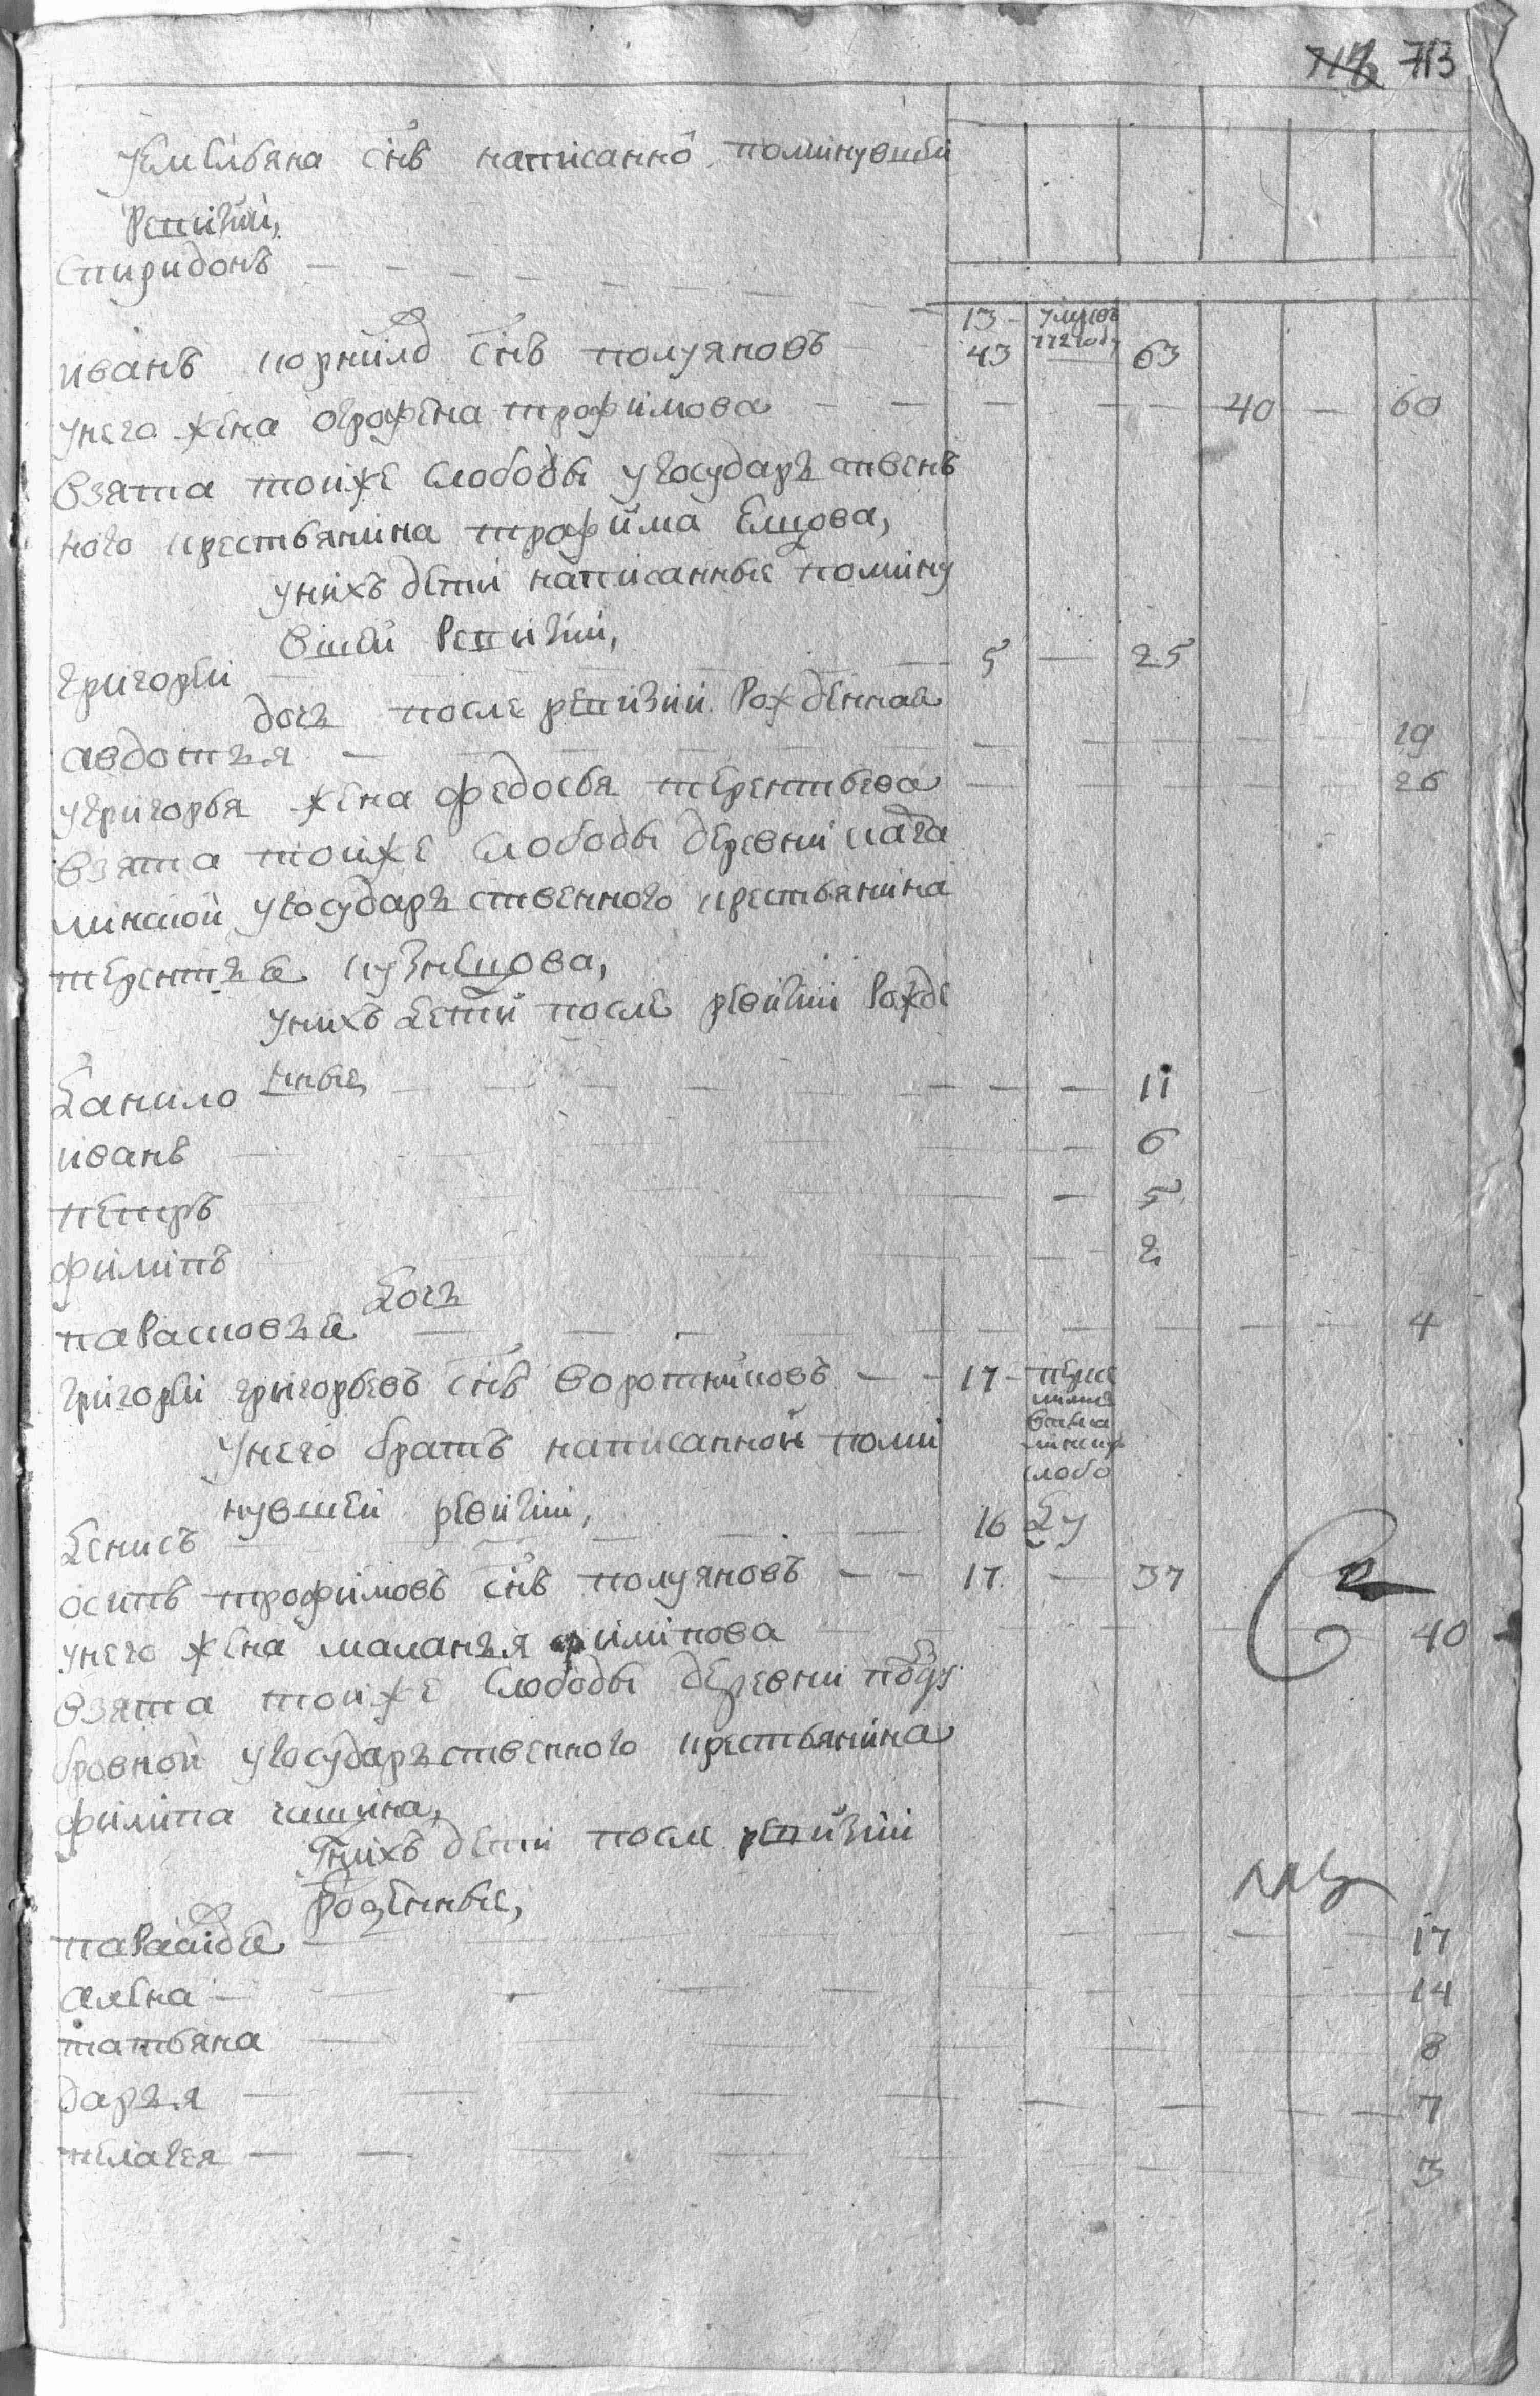 713
Уемельяна снъ написанно поминувшеи
Ревизии,
Спиридонъ 13 умре въ 772 году
иванъ корнило снъ полуяновъ 43 63
унего жена офрофена трофимова 40 60
взята тоиже слободы угосударъственъ
ного крестьянина трафима Елцова,
унихъ дети написанные помину
вшеи Ревизии,
григореи 5 25
дочь после ревизии Рожденная
авдотья 19
угригорья жена федосья терентьева 26
взята тоиже слободы деревни кага
минской угосударъственного крестьянина
терентья кузнецова,
унихъ дети после ревизии Рожде
нные,
данило 11
иванъ 6
петръ 5
филипъ 2
дочь
парасковья 4
григореи григорьевъ снъ воротниковъ 17
унего братъ написанной поми
нувшеи ревизии,
денисъ 16
осипъ трофимовъ снъ полуяновъ 17 37
унего жена маланья филипова 40
взята тоиже слободы деревни поду
бровной угосударъственного крестьянина
филипа чишина,
Унихъ дети после ревизии
Рожденные,
алена 14
татьяна 8
дарья 7
пелагея 3